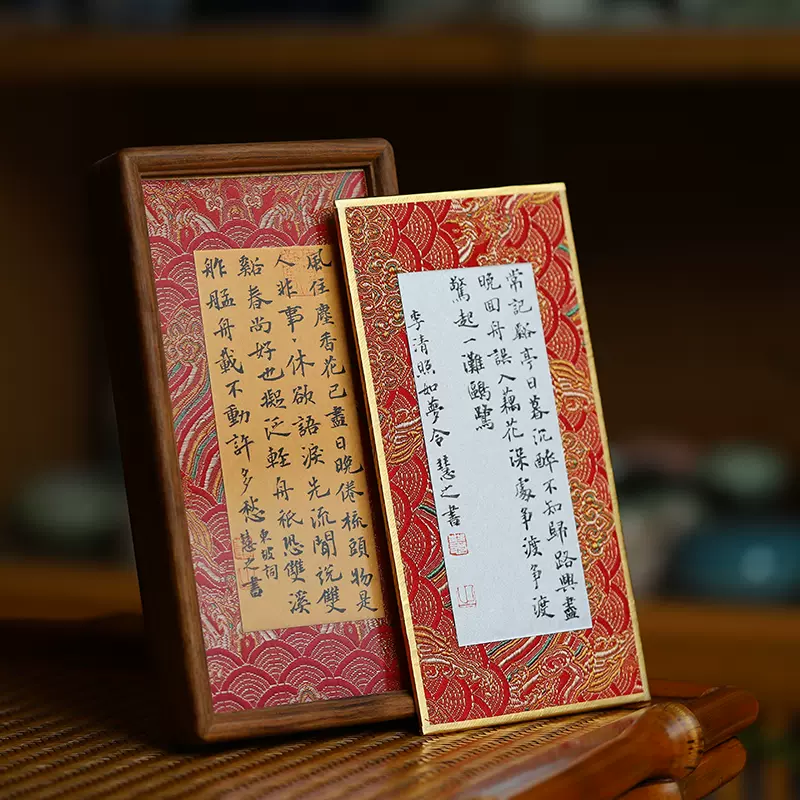 風住塵香花已盡日晚倦梳頭物是
人非事、休欲語淚先流聞說雙
谿春尚好也擬泛輕舟祇恐雙溪
舴艋舟載不動許多愁
東坡詞
慧之書
常記谿亭日暮沉醉不知歸路興盡
晚回舟誤入藕花深處爭渡爭渡
驚起一灘鷗鷺
李清照如夢令 慧之書